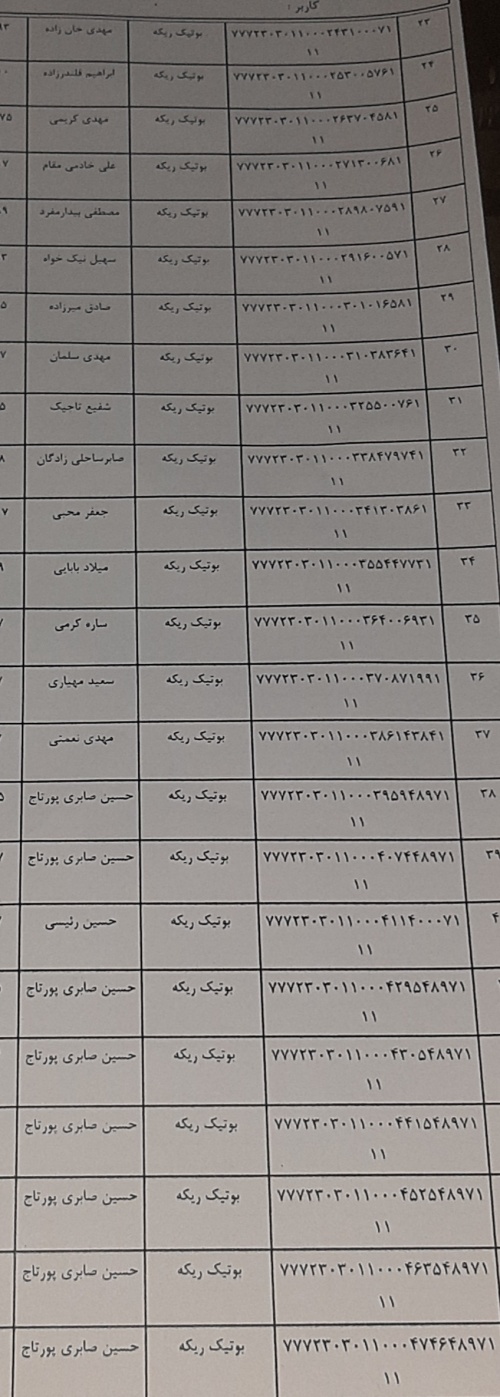 کاربر :
۲۳ ۷۷۷۲۳۰۳۰۱۱۰۰۰۲۴۳۱۰۰۰۷۱ بوتیک ریکه مهدی خان زاده
۱۱
۲۴ ۷۷۷۲۳۰۳۰۱۱۰۰۰۲۵۳۰۰۵۷۶۱ بوتیک ریکه ابراهیم قلندرزاده
۱۱
۲۵ ۷۷۷۲۳۰۳۰۱۱۰۰۰۲۶۳۷۰۴۵۸۱ بوتیک ریکه مهدی کریمی
۱۱
۲۶ ۷۷۷۲۳۰۳۰۱۱۰۰۰۲۷۱۳۰۰۶۸۱ بوتیک ریکه علی خادمی مقام
۱۱
۲۷ ۷۷۷۲۳۰۳۰۱۱۰۰۰۲۸۹۸۰۷۵۹۱ بوتیک ریکه مصطفی بیدارمفرد
۱۱
۲۸ ۷۷۷۲۳۰۳۰۱۱۰۰۰۲۹۱۶۰۰۵۷۱ بوتیک ریکه سهیل نیک خواه
۱۱
۲۹ ۷۷۷۲۳۰۳۰۱۱۰۰۰۳۰۱۰۱۶۵۸۱ بوتیک ریکه صادق میرزاده
۱۱
۳۰ ۷۷۷۲۳۰۳۰۱۱۰۰۰۳۱۰۳۸۳۶۴۱ بوتیک ریکه مهدی سلمان
۱۱
۳۱ ۷۷۷۲۳۰۳۰۱۱۰۰۰۳۲۵۵۰۰۷۶۱ بوتیک ریکه شفیع تاجیک
۱۱
۳۲ ۷۷۷۲۳۰۳۰۱۱۰۰۰۳۳۸۴۷۹۷۴۱ بوتیک ریکه صابرساحلی زادگان
۱۱
۳۳ ۷۷۷۲۳۰۳۰۱۱۰۰۰۳۴۱۳۰۳۸۶۱ بوتیک ریکه جعفر محبی
۱۱
۳۴ ۷۷۷۲۳۰۳۰۱۱۰۰۰۳۵۵۴۴۷۷۳۱ بوتیک ریکه میلاد بابایی
۱۱
۳۵ ۷۷۷۲۳۰۳۰۱۱۰۰۰۳۶۴۰۰۶۹۳۱ بوتیک ریکه ساره کرمی
۱۱
۳۶ ۷۷۷۲۳۰۳۰۱۱۰۰۰۳۷۰۸۷۱۹۹۱ بوتیک ریکه سعید مهیاری
۱۱
۳۷ ۷۷۷۲۳۰۳۰۱۱۰۰۰۳۸۶۱۴۳۸۴۱ بوتیک ریکه مهدی نعمتی
۱۱
۳۸ ۷۷۷۲۳۰۳۰۱۱۰۰۰۳۹۵۹۴۸۹۷۱ بوتیک ریکه حسین صابری پورتاج
۱۱
۳۹ ۷۷۷۲۳۰۳۰۱۱۰۰۰۴۰۷۴۴۸۹۷۱ بوتیک ریکه حسین صابری پورتاج
۱۱
۷۷۷۲۳۰۳۰۱۱۰۰۰۴۱۱۴۰۰۰۷۱ بوتیک ریکه حسین رئیسی
۱۱
۷۷۷۲۳۰۳۰۱۱۰۰۰۴۲۹۵۴۸۹۷۱ بوتیک ریکه حسین صابری پورتاج
۱۱
۷۷۷۲۳۰۳۰۱۱۰۰۰۴۳۰۵۴۸۹۷۱ بوتیک ریکه حسین صابری پورتاج
۱۱
۷۷۷۲۳۰۳۰۱۱۰۰۰۴۴۱۵۴۸۹۷۱ بوتیک ریکه حسین صابری پورتاج
۱۱
۷۷۷۲۳۰۳۰۱۱۰۰۰۴۵۲۵۴۸۹۷۱ بوتیک ریکه حسین صابری پورتاج
۱۱
۷۷۷۲۳۰۳۰۱۱۰۰۰۴۶۳۵۴۸۹۷۱ بوتیک ریکه حسین صابری پورتاج
۱۱
۷۷۷۲۳۰۳۰۱۱۰۰۰۴۷۴۶۴۸۹۷۱ بوتیک ریکه حسین صابری پورتاج
۱۱